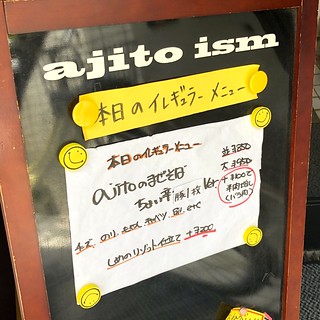 ajito ism
本日のイレギュラーメニュー
本日のイレギュラーメニュー
並¥850
大¥950
ajitoのまぜそば
ちょい辛 豚1枚
+¥100で
チーズ、のり、もやし、キャベツ、etc
しめのリゾット仕立て +¥200